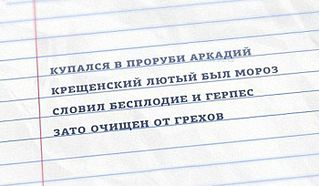 КУПАЛСЯ В ПРОРУБИ АРКАДИЙ
КРЕЩЕНСКИЙ ЛЮТЫЙ БЫЛ МОРОЗ
СЛОВИЛ БЕСПЛОДИЕ И ГЕРПЕС
ЗАТО ОЧИЩЕН ОТ ГРЕХОВ